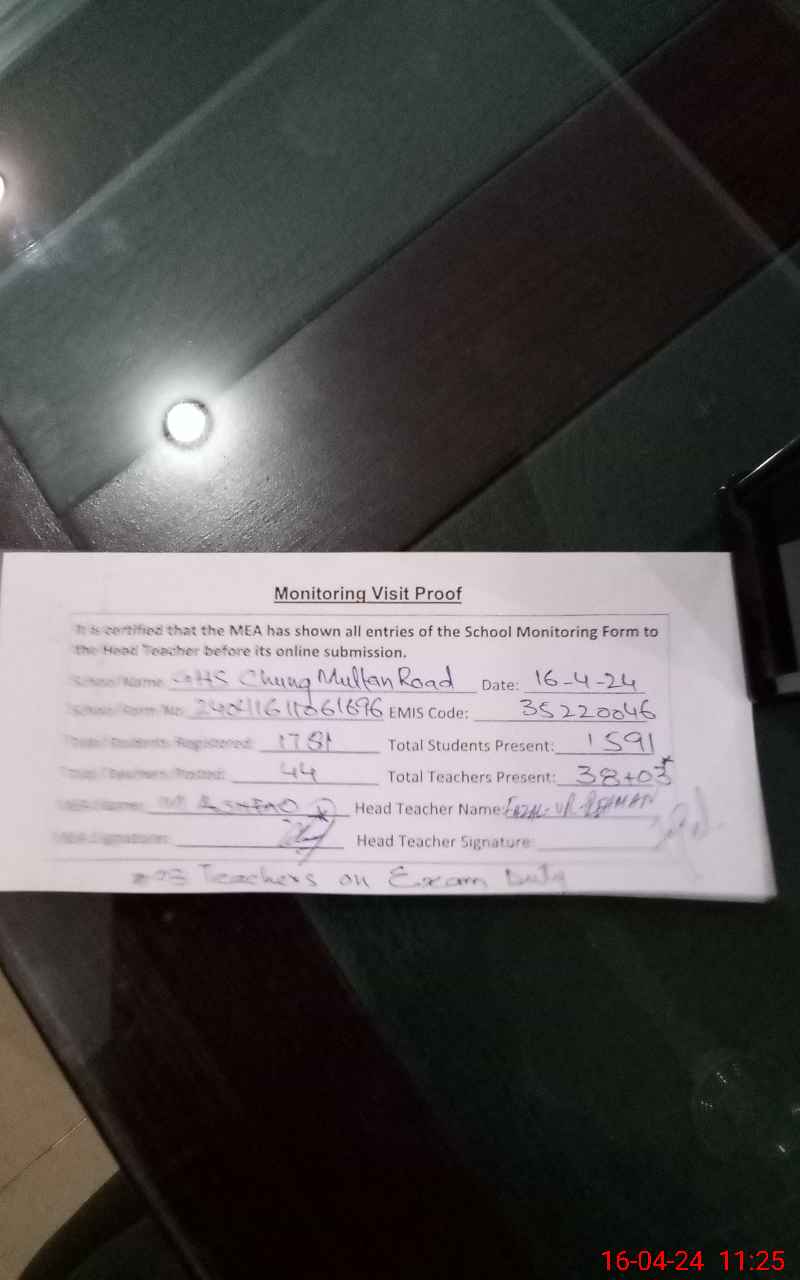 Monitoring Visit Proof
It is certified that the MEA has shown all entries of the School Monitoring Form to
the Head Teacher before its online submission.
School Name: GHS Chung Multan Road Date: 16-4-24
School Form No: EMIS Code: 35220046
Total Students Registered: 1781 Total Students Present: 1591
Total Teachers Posted: 44 Total Teachers Present: 38+03*
MEA Name: Head Teacher Name: FAZAL-UR-REHMAN
MEA Signature: Head Teacher Signature:
Teachers on Exam Duty
16-04-24 11:25